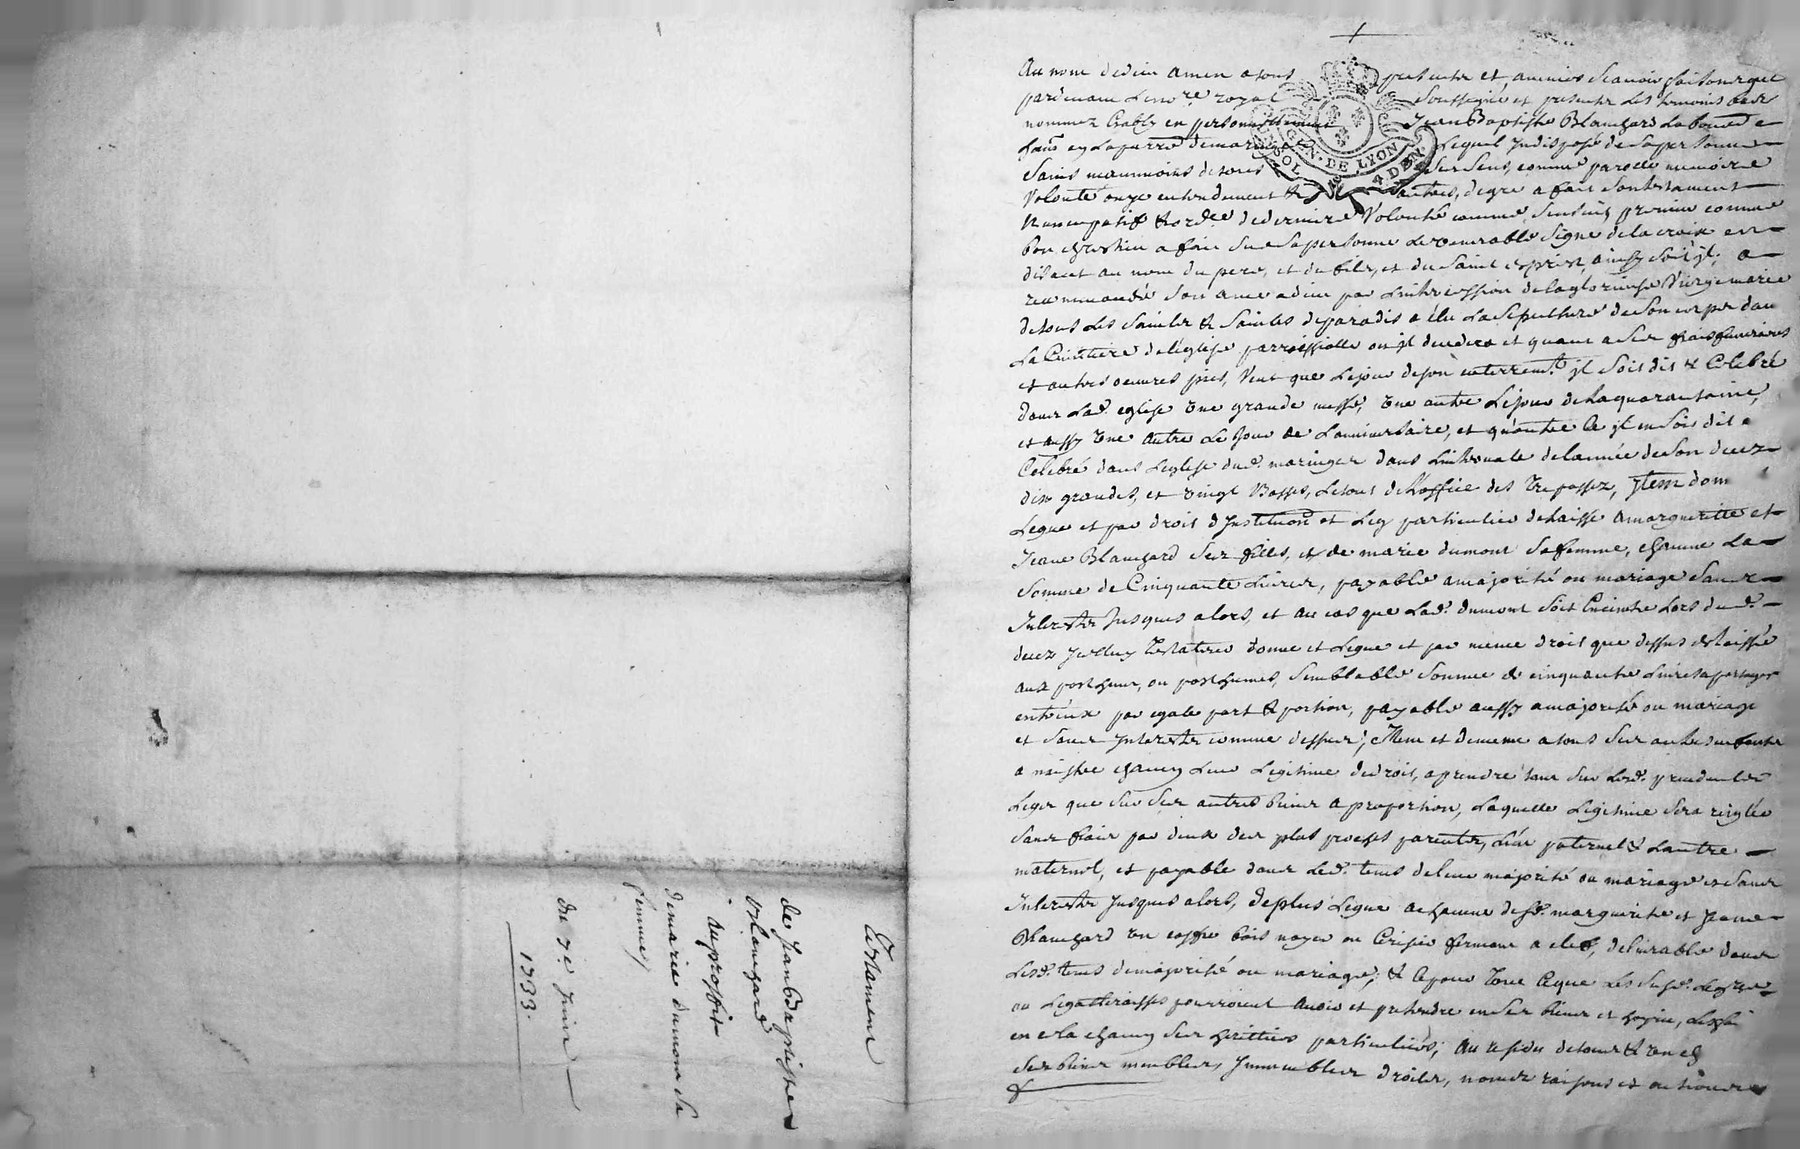 Testament
de Jean Baptiste
Blanchard
au proffit
de marie dumont sa
femme
du 7e. Juin
1733.
Au nom de dieu amen a tous presents et avenir scavoir faisons que
pardevant le no.re royal soussigné et presents les temoins bas
nommez Estably en personnellement Jean Baptiste Blanchard
lequel Indisposé de sa personne
Sains neanmoins de tous ses sens, comme parolle memoire
Volonté ouye entendement & autres, de gré a fait son testament
Nuncupatif & ord.ce de derniere Volonté comme sensuit, premier comme
bon chrestien a fait sur sa personne le venerable signe de la croix en
disant au nom du pere, et du fils, et du saint esprit, ainsy soit jl, a
recommandé son ame a dieu par l'intercession de la glorieuse Vierge marie
de tous les saints & saintes de paradis a élu la sepulture de son corps dans
le Cimitiere de léglise parroissialle ou jl decedera et quant a ses frais funeraires
et autres oeuvres pies, Veut que le jour de son enterremt. jl soit dit & Celebré
dans lad. eglise une grande messe, une autre le jour de la quarantaine,
et aussy une autre le jour de l'anniversaire, et qu'outre ce jl en soit dit &
Celebré dans l'eglise dud. maringes dans l'intervale de lannée de son decez
dix grandes, et vingt Basses, le tout de l'office des trepassez, Jtem donne
Legue et par droit d'Institution et Leg particulier delaisse a marguerite et
Jeane Blanchard ses filles, et de marie dumont sa femme, chacune la
somme de Cinquante Livres, payable a majorité ou mariage sans
Interests Jusques alors, et au cas que lad. dumont soit Enceinte lors dud.
decez Jcelluy Testateur donne et Legue et par meme droit que dessus delaisse
aux posthume, ou posthumes, semblable somme de cinquante Livres a partager
entr'eux par egale part & portion, payable aussy a majorité ou mariage
et sans Interests comme dessus, Item et de meme a tous ses autres enfants
a naistre chacun leur Legitime de droit, a prendre tant sur lesd. precedents
Legs que sur ses autres biens a proportion, laquelle Legitime sera reiglée
sans frais par deux des plus proches parents, L'un paternel & Lautre
maternel, et payable dans led. tems de leur majorité ou mariage et sans
Interests Jusques alors, de plus Legue a chacune desd. marguerite et Jeane
Blanchard un coffre bois noyer ou Cerisier fermant a clef, delivrable dans
lesd. tems de majorité ou mariage, & a pour tout ce que les susd. Legataires
ou Legitimaires pourroient avoir et pretendre en ses biens et hoirie, les fai
en cela chacun ses heritiers particuliers; au residu de tous & un ch
ses biens meubles, Immeubles droits, noms raisons et actions